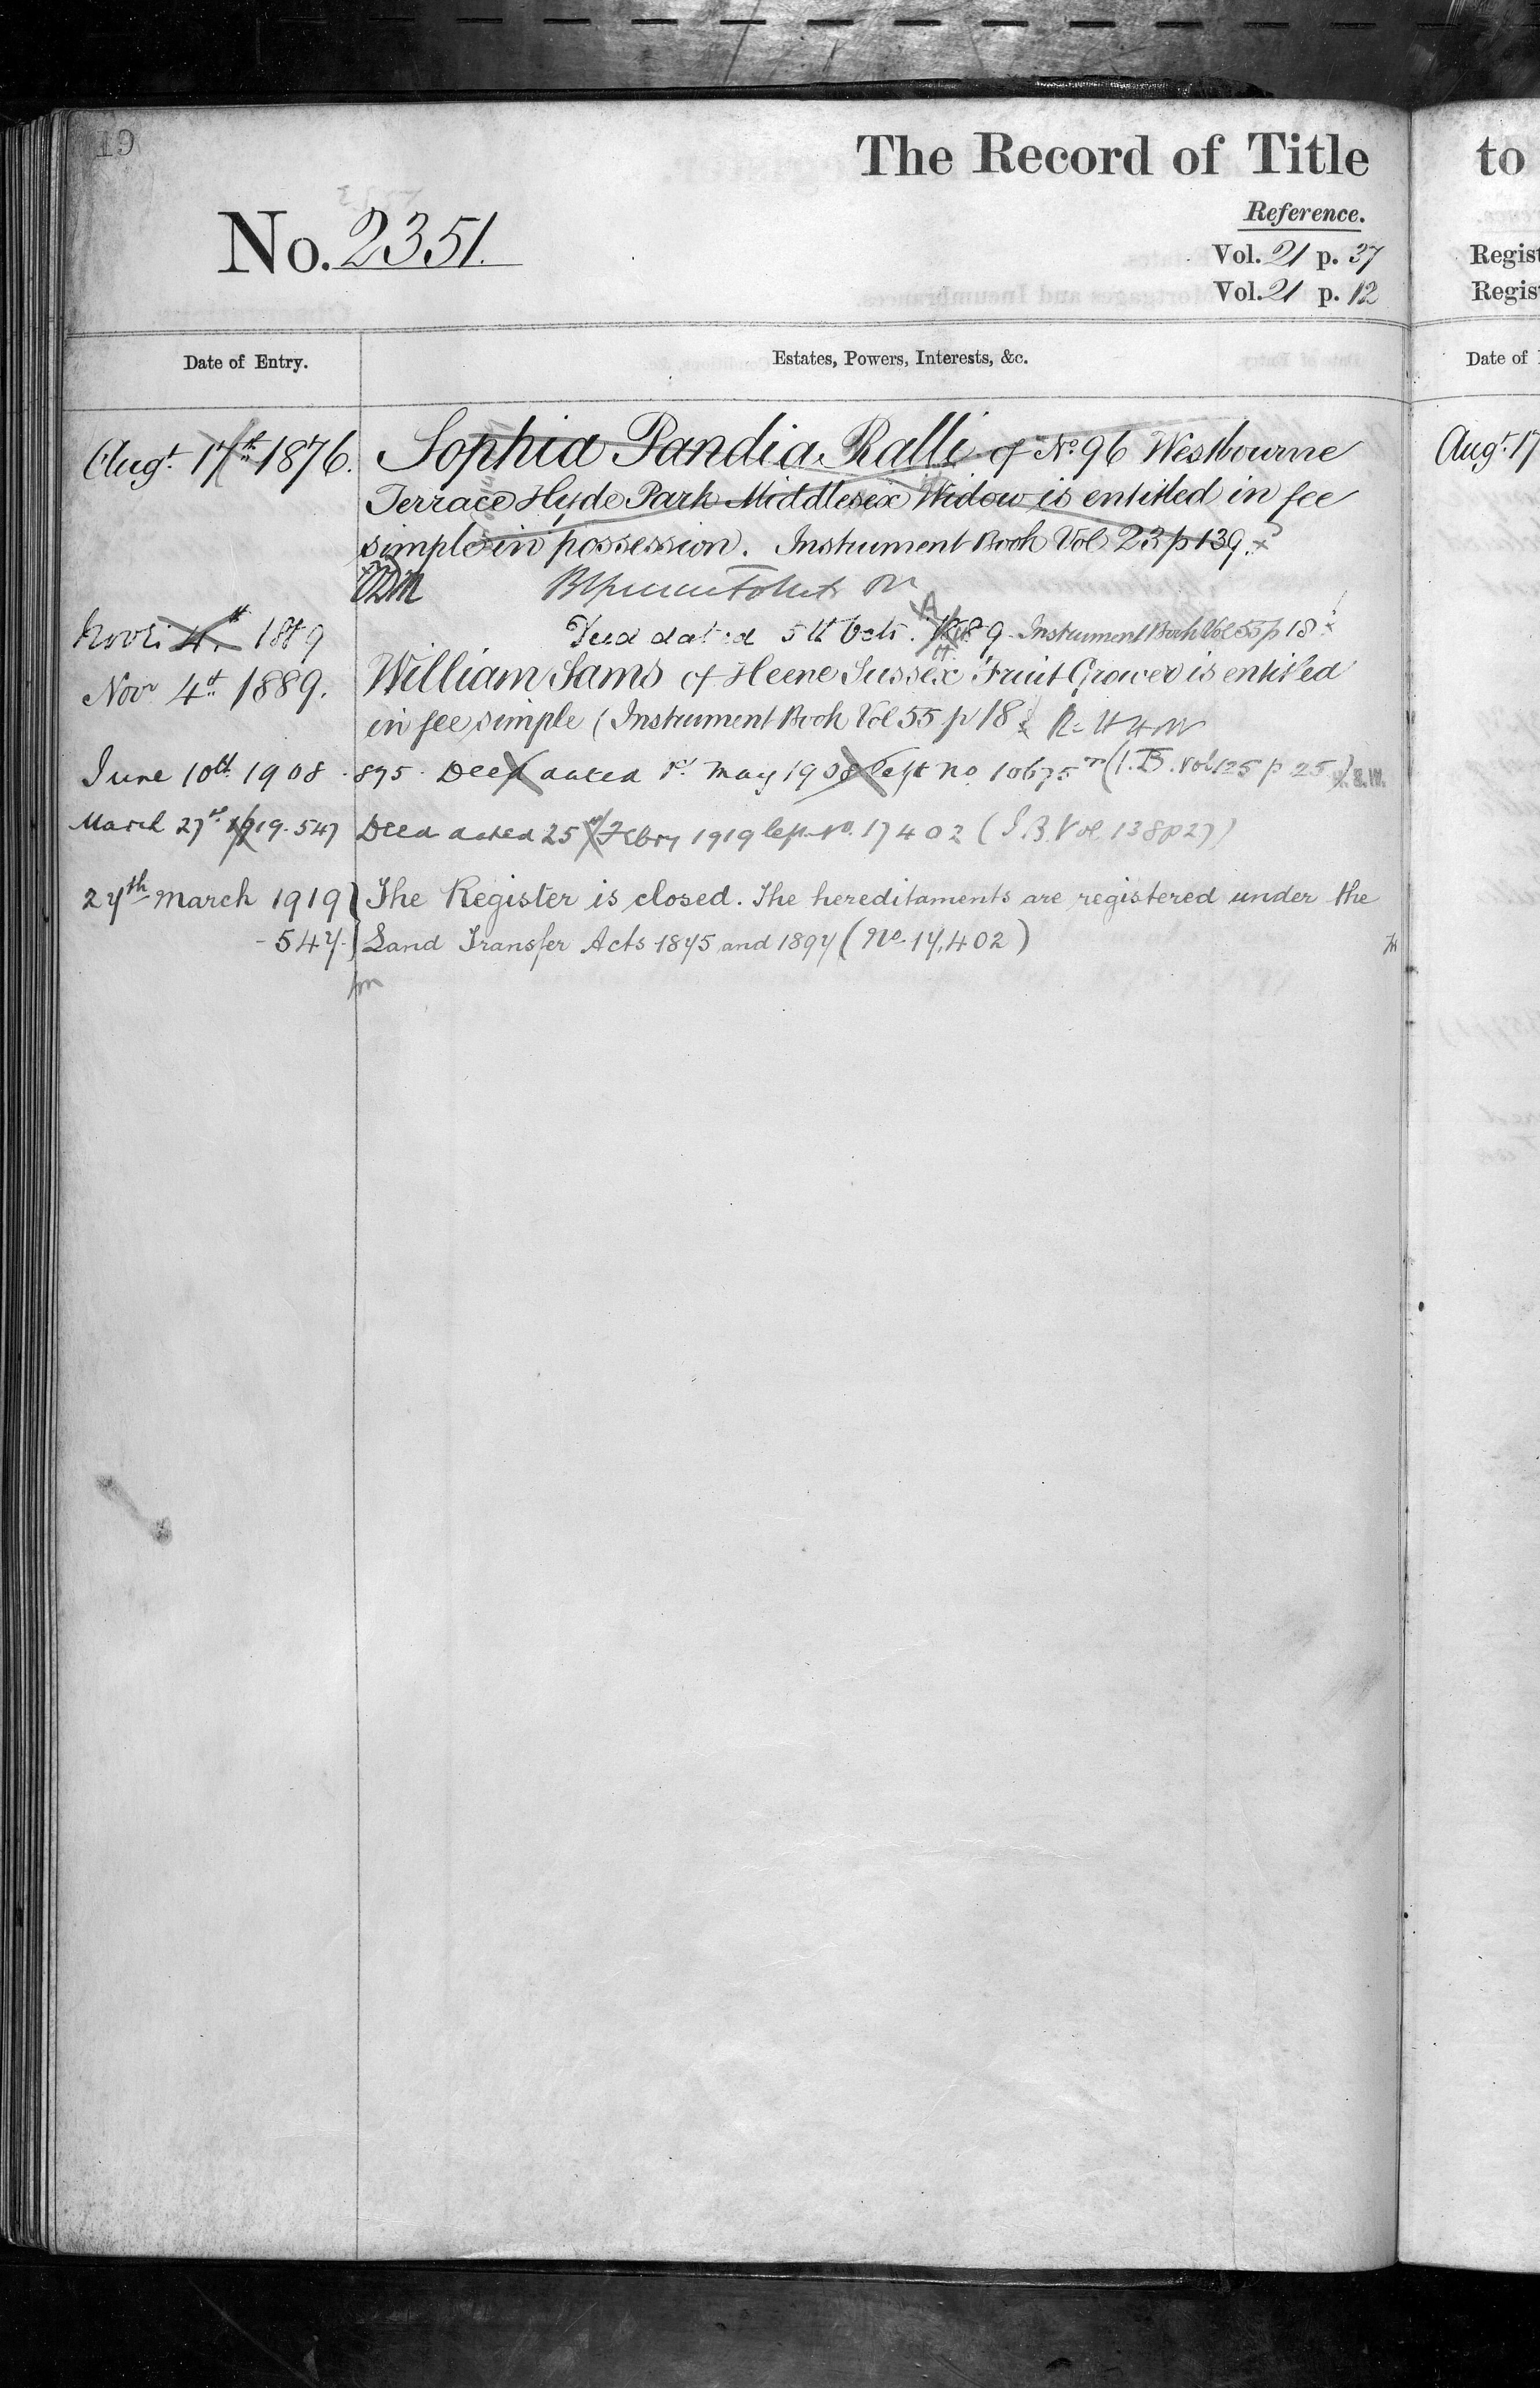 19
The Record of Title
No. 2351.
Reference.
Vol. 21 p. 37
Vol. 21 p. 12
Date of Entry.
Estates, Powers, Interests, &c.
Augt. 17th 1876. Sophia Pandia Ralli of No. 96 Westbourne
Terrace Hyde Park Middlesex Widow is entitled in fee
simple in possession. Instrument Book Vol 23 p 139.
4th 1889 Deed dated 5th Octr. 1889. Instrument Book Vol 55 p 18
Novr 4th 1889. William Sams of Heene Sussex Fruit Grower is entitled
in fee simple (Instrument Book Vol 55 p 18
June 10th 1908. 895. Deed dated 1st May 1908 No 10675 (I.B. Vol 125 p 25)
March 27th 1919. 547 Deed dated 25 Febry 1919 No. 17402 (I.B. Vol. 138 p 27)
27th March 1919 The Register is closed. The hereditaments are registered under the
- 547. Land Transfer Acts 1875 and 1897 (No. 17,402)
to
Regist
Regis
Date of
Augt. 17